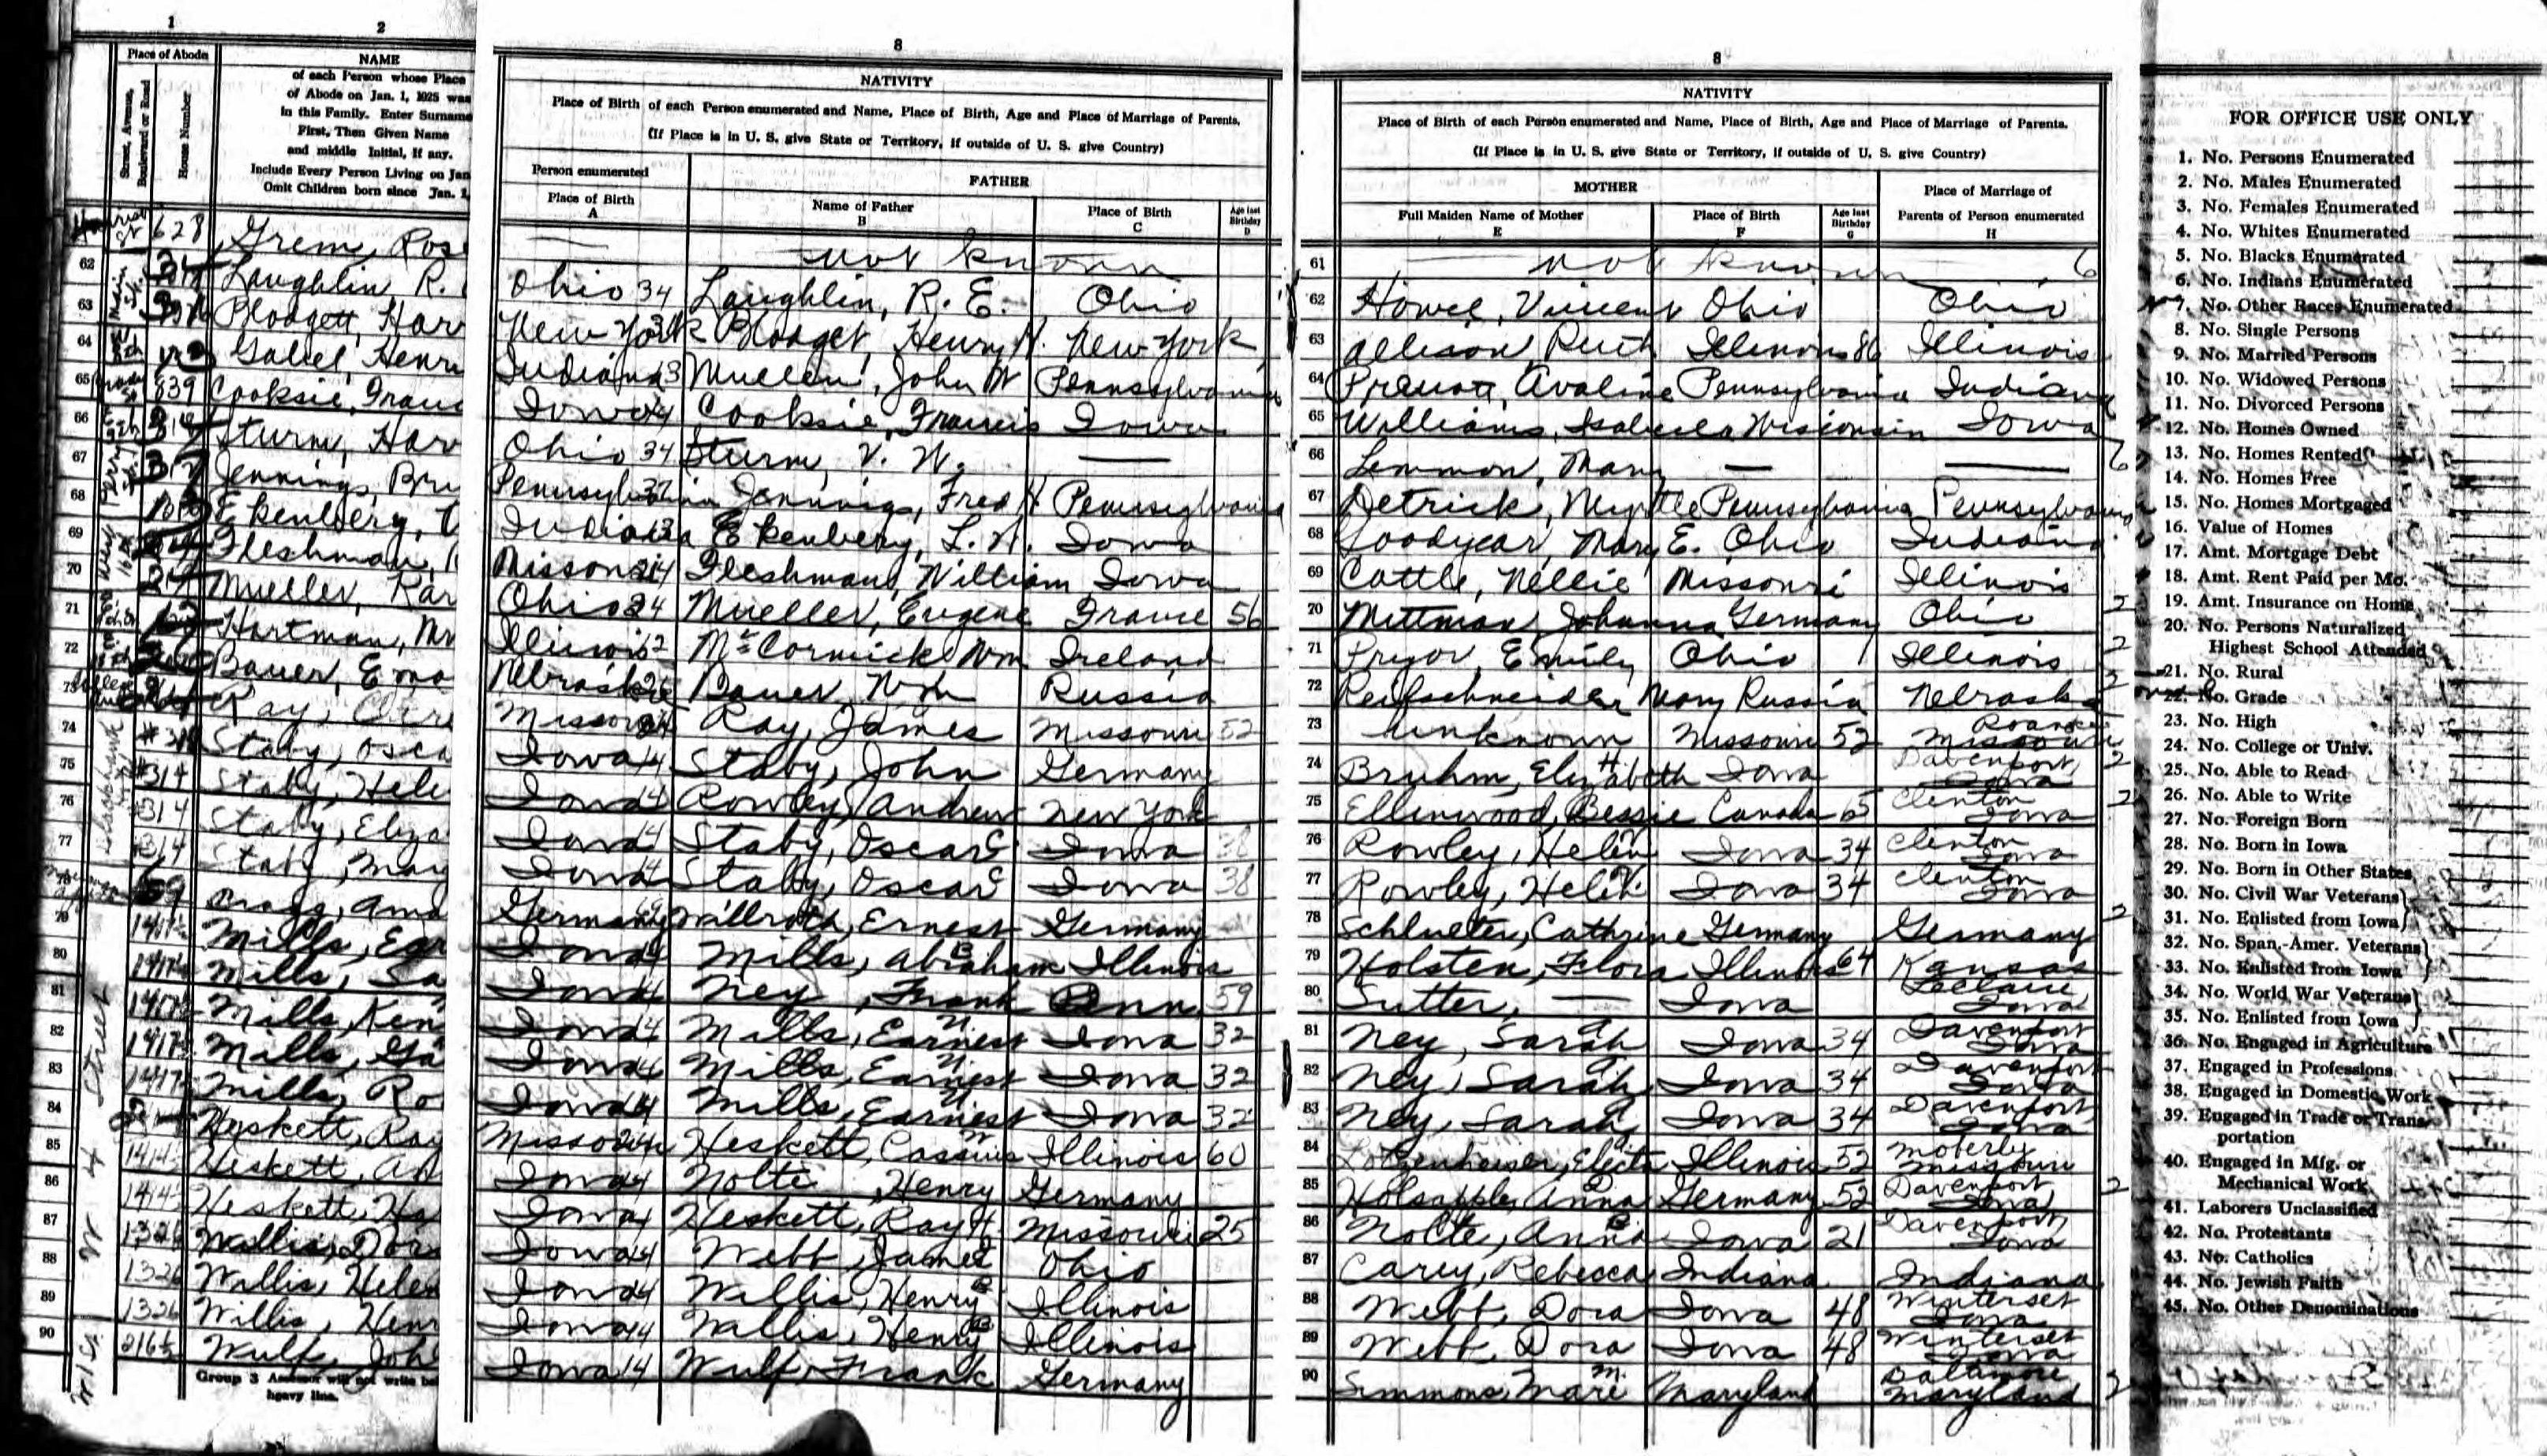 1
2
Place of Abode
Street, Avenue, Boulevard or Road
House Number
NAME
of each Person whose Place
of Abode on Jan. 1, 1925 was
in this Family. Enter Surname
First, Then Given Name
and middle Initial, if any.
Include Every Person Living on Jan
Omit Children born since Jan. 1,
628 Grem, Rose
62 Laughlin, R.
63 Blodgett, Har
64 Gabel, Henri
65 839 Cooksie, Franc
66 Sturm, Har
67 Jennings, Bru
68 Ekenbery,
69 Fleshman,
70 Mueller, Kar
71 Hartman, Mr
72 Bauer, Emo
73 Ray,
74 #314 Staby, Osca
75 #314 Staby, Hele
76 #314 Staby, Eliza
77 #314 Staby, May
78 Cragg, Ama
79 1417½ Mills, Ear
80 1417½ Mills, Sa
81 1417½ Mills, Ken
82 1417½ Mills, Ga
83 1417½ Mills, Ro
84 Heskett, Ray
85 1414½ Heskett, An
86 1414½ Heskett, Ha
87 1326 Willis, Dora
88 1326 Willis, Helen
89 1326 Willis, Henr
90 216½ Wulf, Joh
W 4 Street
Group 3 Assessor will not write be
heavy line.
8
NATIVITY
Place of Birth of each Person enumerated and Name, Place of Birth, Age and Place of Marriage of Parents.
(If Place is in U. S. give State or Territory, if outside of U. S. give Country)
Person enumerated
FATHER
Place of Birth A
Name of Father B
Place of Birth C
Age last Birthday D
not known
Ohio 34 Laughlin, R. E. Ohio
New York Blodget, Henry H. New York
Indiana 13 Mullen, John W Pennsylvania
Iowa 14 Cooksie, Francis Iowa
Ohio 34 Sturm, V. W. —
Pennsylvania Jennings, Fred H Pennsylvania
Indiana Ekenbery, L. A. Iowa
Missouri 24 Fleshman, William Iowa
Ohio 34 Mueller, Eugene France 56
Illinois 12 McCormick Wm Ireland
Nebraska Bauer, Wm Russia
Missouri 24 Ray, James Missouri 52
Iowa 14 Staby, John Germany
Iowa 14 Rowley, Andrew New York
Iowa 14 Staby, Oscar C Iowa 38
Iowa 14 Staby, Oscar C Iowa 38
Germany Willroth, Ernest Germany
Iowa 14 Mills, Abraham B Illinois
Iowa 14 Ney, Frank 59
Iowa 14 Mills, Earnest N. Iowa 32
Iowa 14 Mills, Earnest N. Iowa 32
Iowa 14 Mills, Earnest N. Iowa 32
Missouri 24 Heskett, Cassius W Illinois 60
Iowa 14 Nolte, Henry Germany
Iowa 14 Heskett, Ray H. Missouri 25
Iowa 14 Webb, James Ohio
Iowa 14 Willis, Henry B Illinois
Iowa 14 Willis, Henry B Illinois
Iowa 14 Wulf, Frank Germany
8
NATIVITY
Place of Birth of each Person enumerated and Name, Place of Birth, Age and Place of Marriage of Parents.
(If Place is in U. S. give State or Territory, if outside of U. S. give Country)
MOTHER
Place of Marriage of
Full Maiden Name of Mother E
Place of Birth F
Age last Birthday G
Parents of Person enumerated H
61 not known 6
62 Howel, Vincent Ohio Ohio
63 Allison, Ruth Illinois 86 Illinois
64 Avaline Pennsylvania Indiana
65 Williams, Isabella Wisconsin Iowa
66 Lemmon, Mary — — 6
67 Detrick, Myrtle Pennsylvania Pennsylvania
68 Goodyear, Mary E. Ohio Indiana
69 Cattle, Nellie Missouri Illinois
70 Mittman, Johanna Germany Ohio 2
71 Pryor, Emily Ohio Illinois 2
72 Reifschneider Mary Russia Nebraska 2
73 Unknown Missouri 52 Roanoke Missouri
74 Bruhm, Elizabeth H Iowa Davenport, Iowa 2
75 Ellinwood, Bessie Canada 65 Clinton Iowa 2
76 Rowley, Helen V. Iowa 34 Clinton Iowa
77 Rowley, Helen V. Iowa 34 Clinton Iowa
78 Schlueter, Cathrine Germany Germany 2
79 Holsten, Flora Illinois 64 Kansas
80 Sutter, — Iowa Leclaire Iowa
81 Ney, Sarah A Iowa 34 Davenport Iowa
82 Ney, Sarah A Iowa 34 Davenport Iowa
83 Ney, Sarah A Iowa 34 Davenport Iowa
84 Lotzenheiser, Electa Illinois 52 Moberly Missouri
85 Holsapple, Anna D. Germany 52 Davenport Iowa 2
86 Nolte, Anna B. Iowa 21 Davenport Iowa
87 Carey, Rebecca Indiana Indiana
88 Webb, Dora Iowa 48 Winterset Iowa
89 Webb, Dora Iowa 48 Winterset Iowa
90 Simmons, Marie M. Maryland Baltimore Maryland 2
FOR OFFICE USE ONLY
1. No. Persons Enumerated
2. No. Males Enumerated
3. No. Females Enumerated
4. No. Whites Enumerated
5. No. Blacks Enumerated
6. No. Indians Enumerated
7. No. Other Races Enumerated
8. No. Single Persons
9. No. Married Persons
10. No. Widowed Persons
11. No. Divorced Persons
12. No. Homes Owned
13. No. Homes Rented
14. No. Homes Free
15. No. Homes Mortgaged
16. Value of Homes
17. Amt. Mortgage Debt
18. Amt. Rent Paid per Mo.
19. Amt. Insurance on Home
20. No. Persons Naturalized
Highest School Attended
21. No. Rural
22. No. Grade
23. No. High
24. No. College or Univ.
25. No. Able to Read
26. No. Able to Write
27. No. Foreign Born
28. No. Born in Iowa
29. No. Born in Other States
30. No. Civil War Veterans
31. No. Enlisted from Iowa
32. No. Span.-Amer. Veterans
33. No. Enlisted from Iowa
34. No. World War Veterans
35. No. Enlisted from Iowa
36. No. Engaged in Agriculture
37. Engaged in Professions
38. Engaged in Domestic Work
39. Engaged in Trade or Trans-
portation
40. Engaged in Mfg. or
Mechanical Work
41. Laborers Unclassified
42. No. Protestants
43. No. Catholics
44. No. Jewish Faith
45. No. Other Denominations